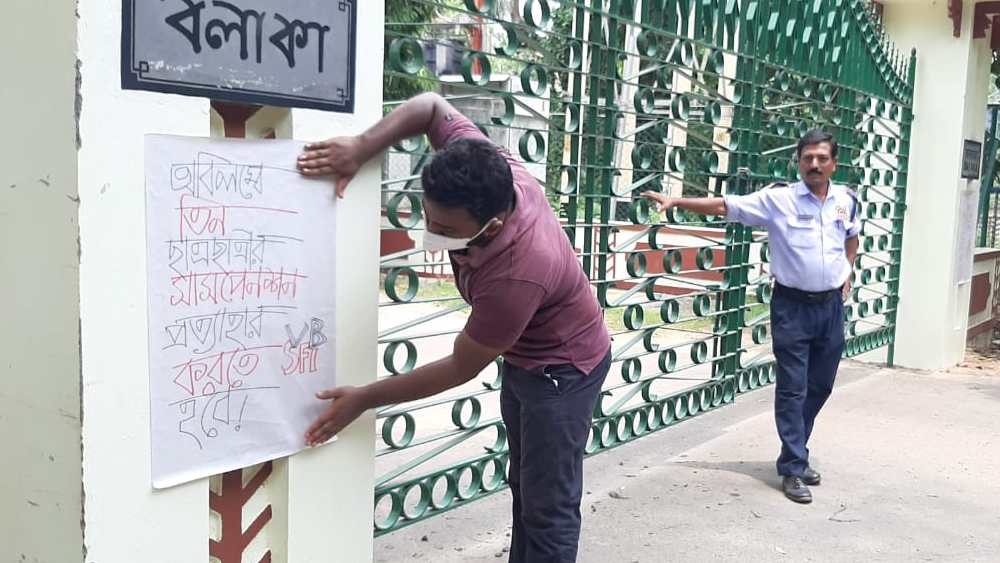 বলাকা
অবিলম্বে
তিন
ছাত্রছাত্রীর
সাসপেনশন
প্রত্যাহার
করতে
হবে!
VB
SFI